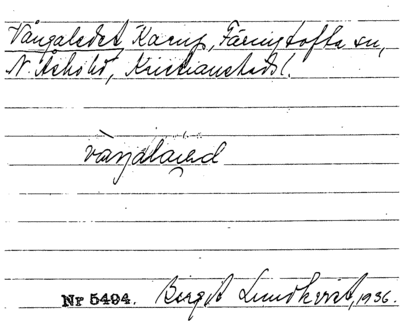 Vångaledet Kamp, Färingtofta sn,
N. Åsbohd, Kristianstads l.
våŋalaıəd
Nr 5494. Birgit Lundkvist, 1936.